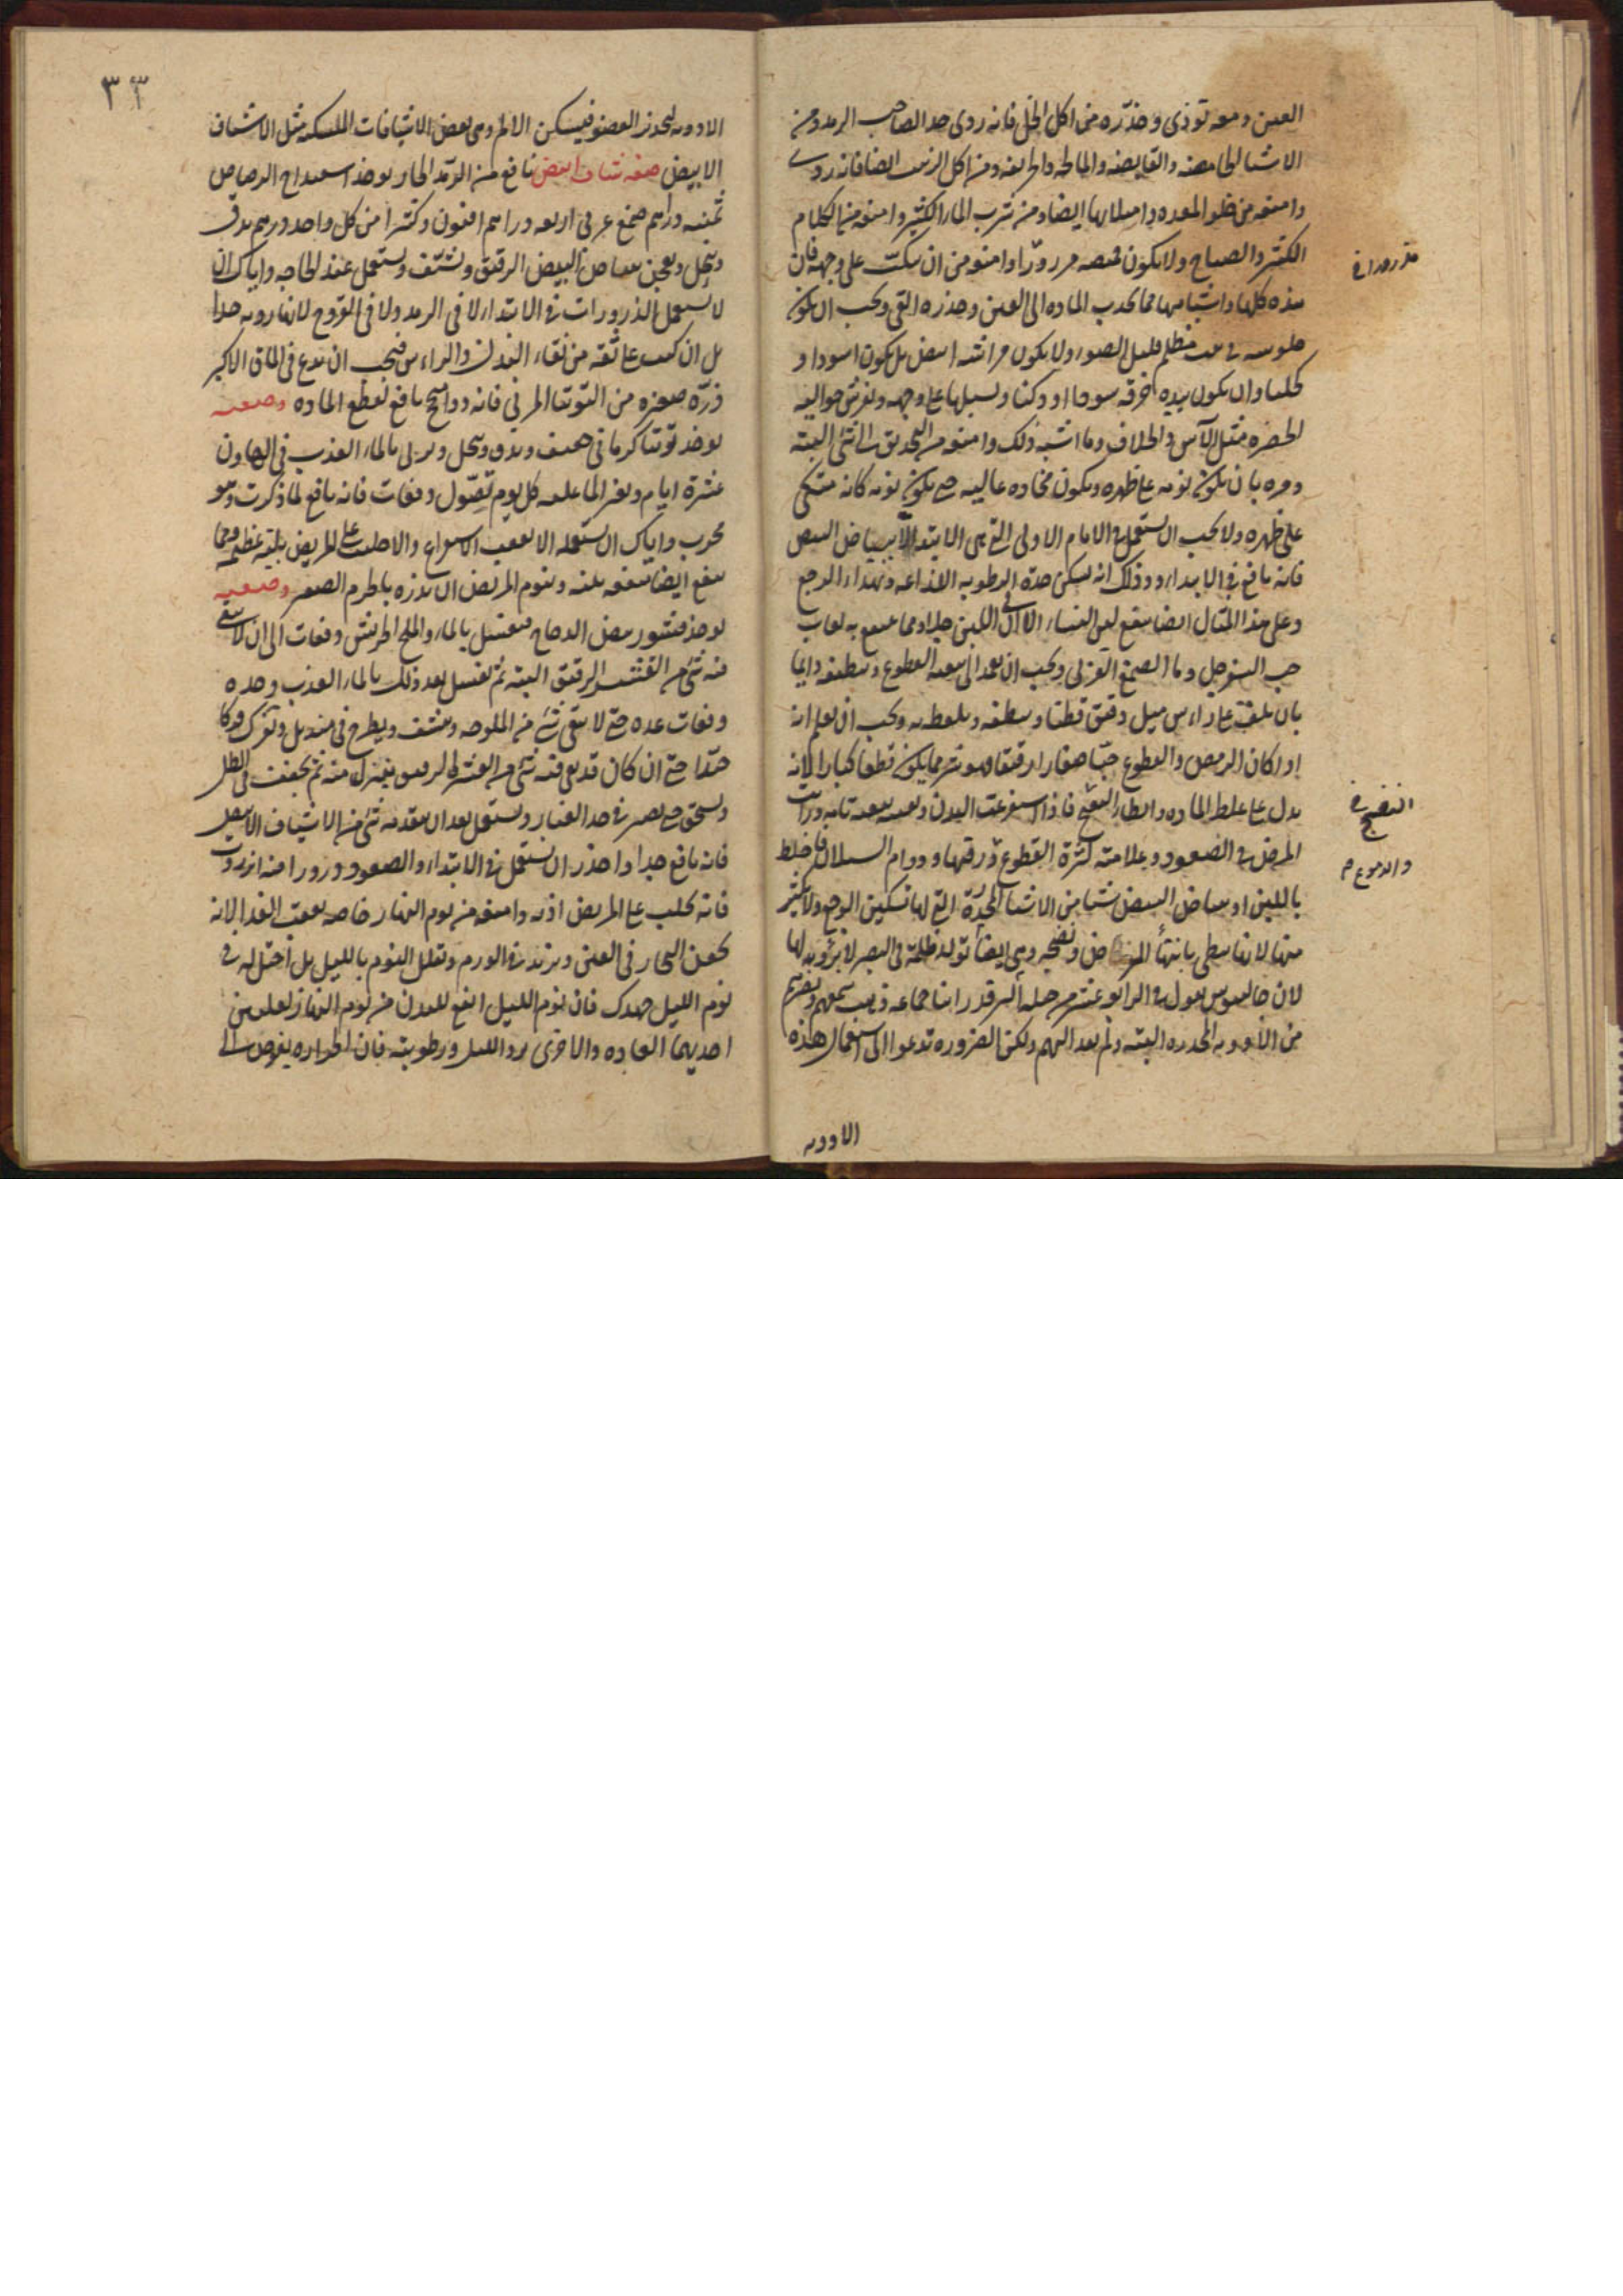 العين ومعه توذى وحذّره من اكل الخل فانه ردى جدا لصاحب الرمد ومن
الاشيا الحامضه والقابضه والمالحه والحريفه ومن اكل الزيت ايضا فانه ردى
وامنعه من خلو المعده وامتلائها ايضا ومن شرب الماء الكثير وامنعه من الكلام
الكثير والصياح ولا يكون قميصه مزررّا وامنعه من ان يكبّ على وجهه فان
هذه كلها واشباهها مما يجذب الماده الى العين وحذره القى ويجب ان يكون
جلوسه فى بيت مظلم قليل الضوء ولا يكون فراشه ابيض بل يكون اسود او
كحليا وان يكون بيده خرقه سودا او دكنا ويسبلها على وجهه ويفرش حواليه
الخضره مثل الآس والخلاف وما اشبه ذلك وامنعه من التحديق الى شئ البته
ومره بان يكون نومه على ظهره ويكون مخاده عاليه حتى يكون نومه كانه متكى
على ظهره ولا يجب ان يستعمل فى الايام الاولى التى هى الابتدا الا بياض البيض
فانه نافع فى الابتداء وذلك انه يسكن حدة الرطوبه اللذاعه ويهدئ الوجع
وعلى هذا المثال ايضا ينفع لبن النساء الا ان اللبن جلاء ومما ينتفع به لعاب
حب السفرجل وما الصمغ العربى ويجب ان تعمد الى هذه القطوع وتنظفه دايما
بان تلف على راس ميل دقيق قطنا وتنظفه وتلقط به ويجب ان تعلم انه
اذا كان الرمص والقطوع حبّا صغارا رقيقا فهو شر مما يكون قطعا كبارا لانه
يدل على غلظ الماده وابطاء النضج فاذا استفرغت البدن ونقيته تنقيه تامه ورايت
المرض فى الصعود وعلامته كثرة القطوع ورقتها ودوام السيلان فاخلط
باللبن او بياض البيض شيا من الاشيا المخدّرة التى لها تسكين الوجع ولا تكثر
منها لانها تبطى بانتهاء المرض ونضجه وهى ايضا تولد ظلمة فى البصر لا برؤ لها
لان جالينوس يقول فى الرابعه عشر من حيلة البرء قد راينا جماعه ذهب سمعهم وبصرهم
من الادويه المخدره البته ولم يعد اليهم ولكن الضروره تدعوا الى استعمال هذه
الادويه
النضج
والدموع
٣٣
الادويه ليخدر العضو فيسكن الالم وهى بعض الاشيافات المسكنه مثل الاشياف
الابيض صفه شياف ابيض نافع من الرمد الحار يوخذ اسفيداج الرصاص
ثمنيه دراهم صمغ عربى اربعه دراهم افيون وكثيرا من كل واحد درهم يدق
وينخل ويعجن ببياض البيض الرقيق ويشيّف ويستعمل عند الحاجه واياك ان
لا تستعمل الذرورات فى الابتداء لا فى الرمد ولا فى القروح لانها رديه جدا
بل ان كنت على ثقه من نقاء البدن والراس فيجب ان تدع فى الماق الاكبر
ذرّة صغيره من التوتيا المربى فانه دواء نافع لقطع الماده وصفته
يوخذ توتيا كرمانى خفيف ويدق وينخل ويربى بالماء العذب فى الهاون
عشرة ايام ويغير الما عليه كل يوم تصوّل دفعات فانه نافع لما ذكرت وهو
مجرب واياك ان تستعمله الا بعقب الاستفراغ والا جلبت على المريض بلية عظيمه ومما
ينفع ايضا منفعه بينه وينوم المريض ان تذره بالخرم الصغير وصفته
يوخذ قشور بيض الدجاج فيغسل بالماء والملح الجريش دفعات الى ان لا يبقى
فيه شئ من القشر الرقيق البته ثم تغسل بعد ذلك بالماء العذب وحده
دفعات عده حتى لا يبقى شئ من الملوحه وينشف ويطرح فى منديل وتفرك فركا
جيّدا حتى ان كان قد بقى فيه شئ من القشر الرقيق ينعزل منه ثم يجفف فى الظل
ويسحق حتى يصير فى حد الغبار ويستعمل بعد ان يتقدمه شئ من الاشياف الابيض
فانه نافع جدا واحذر ان تستعمل فى الابتداء والصعود ذرورا فيه انزروت
فانه يجلب على المريض اذيه وامنعه من نوم النهار خاصه بعقب الغذا لانه
يحقن البخار فى العين ويزيد فى الورم وتقلل النوم بالليل بل احتل له فى
نوم الليل جهدك فان نوم الليل انفع للبدن من نوم النهار لعلتين
احديهما العاده والاخرى برد الليل ورطوبته فان الحراره يغوص الى